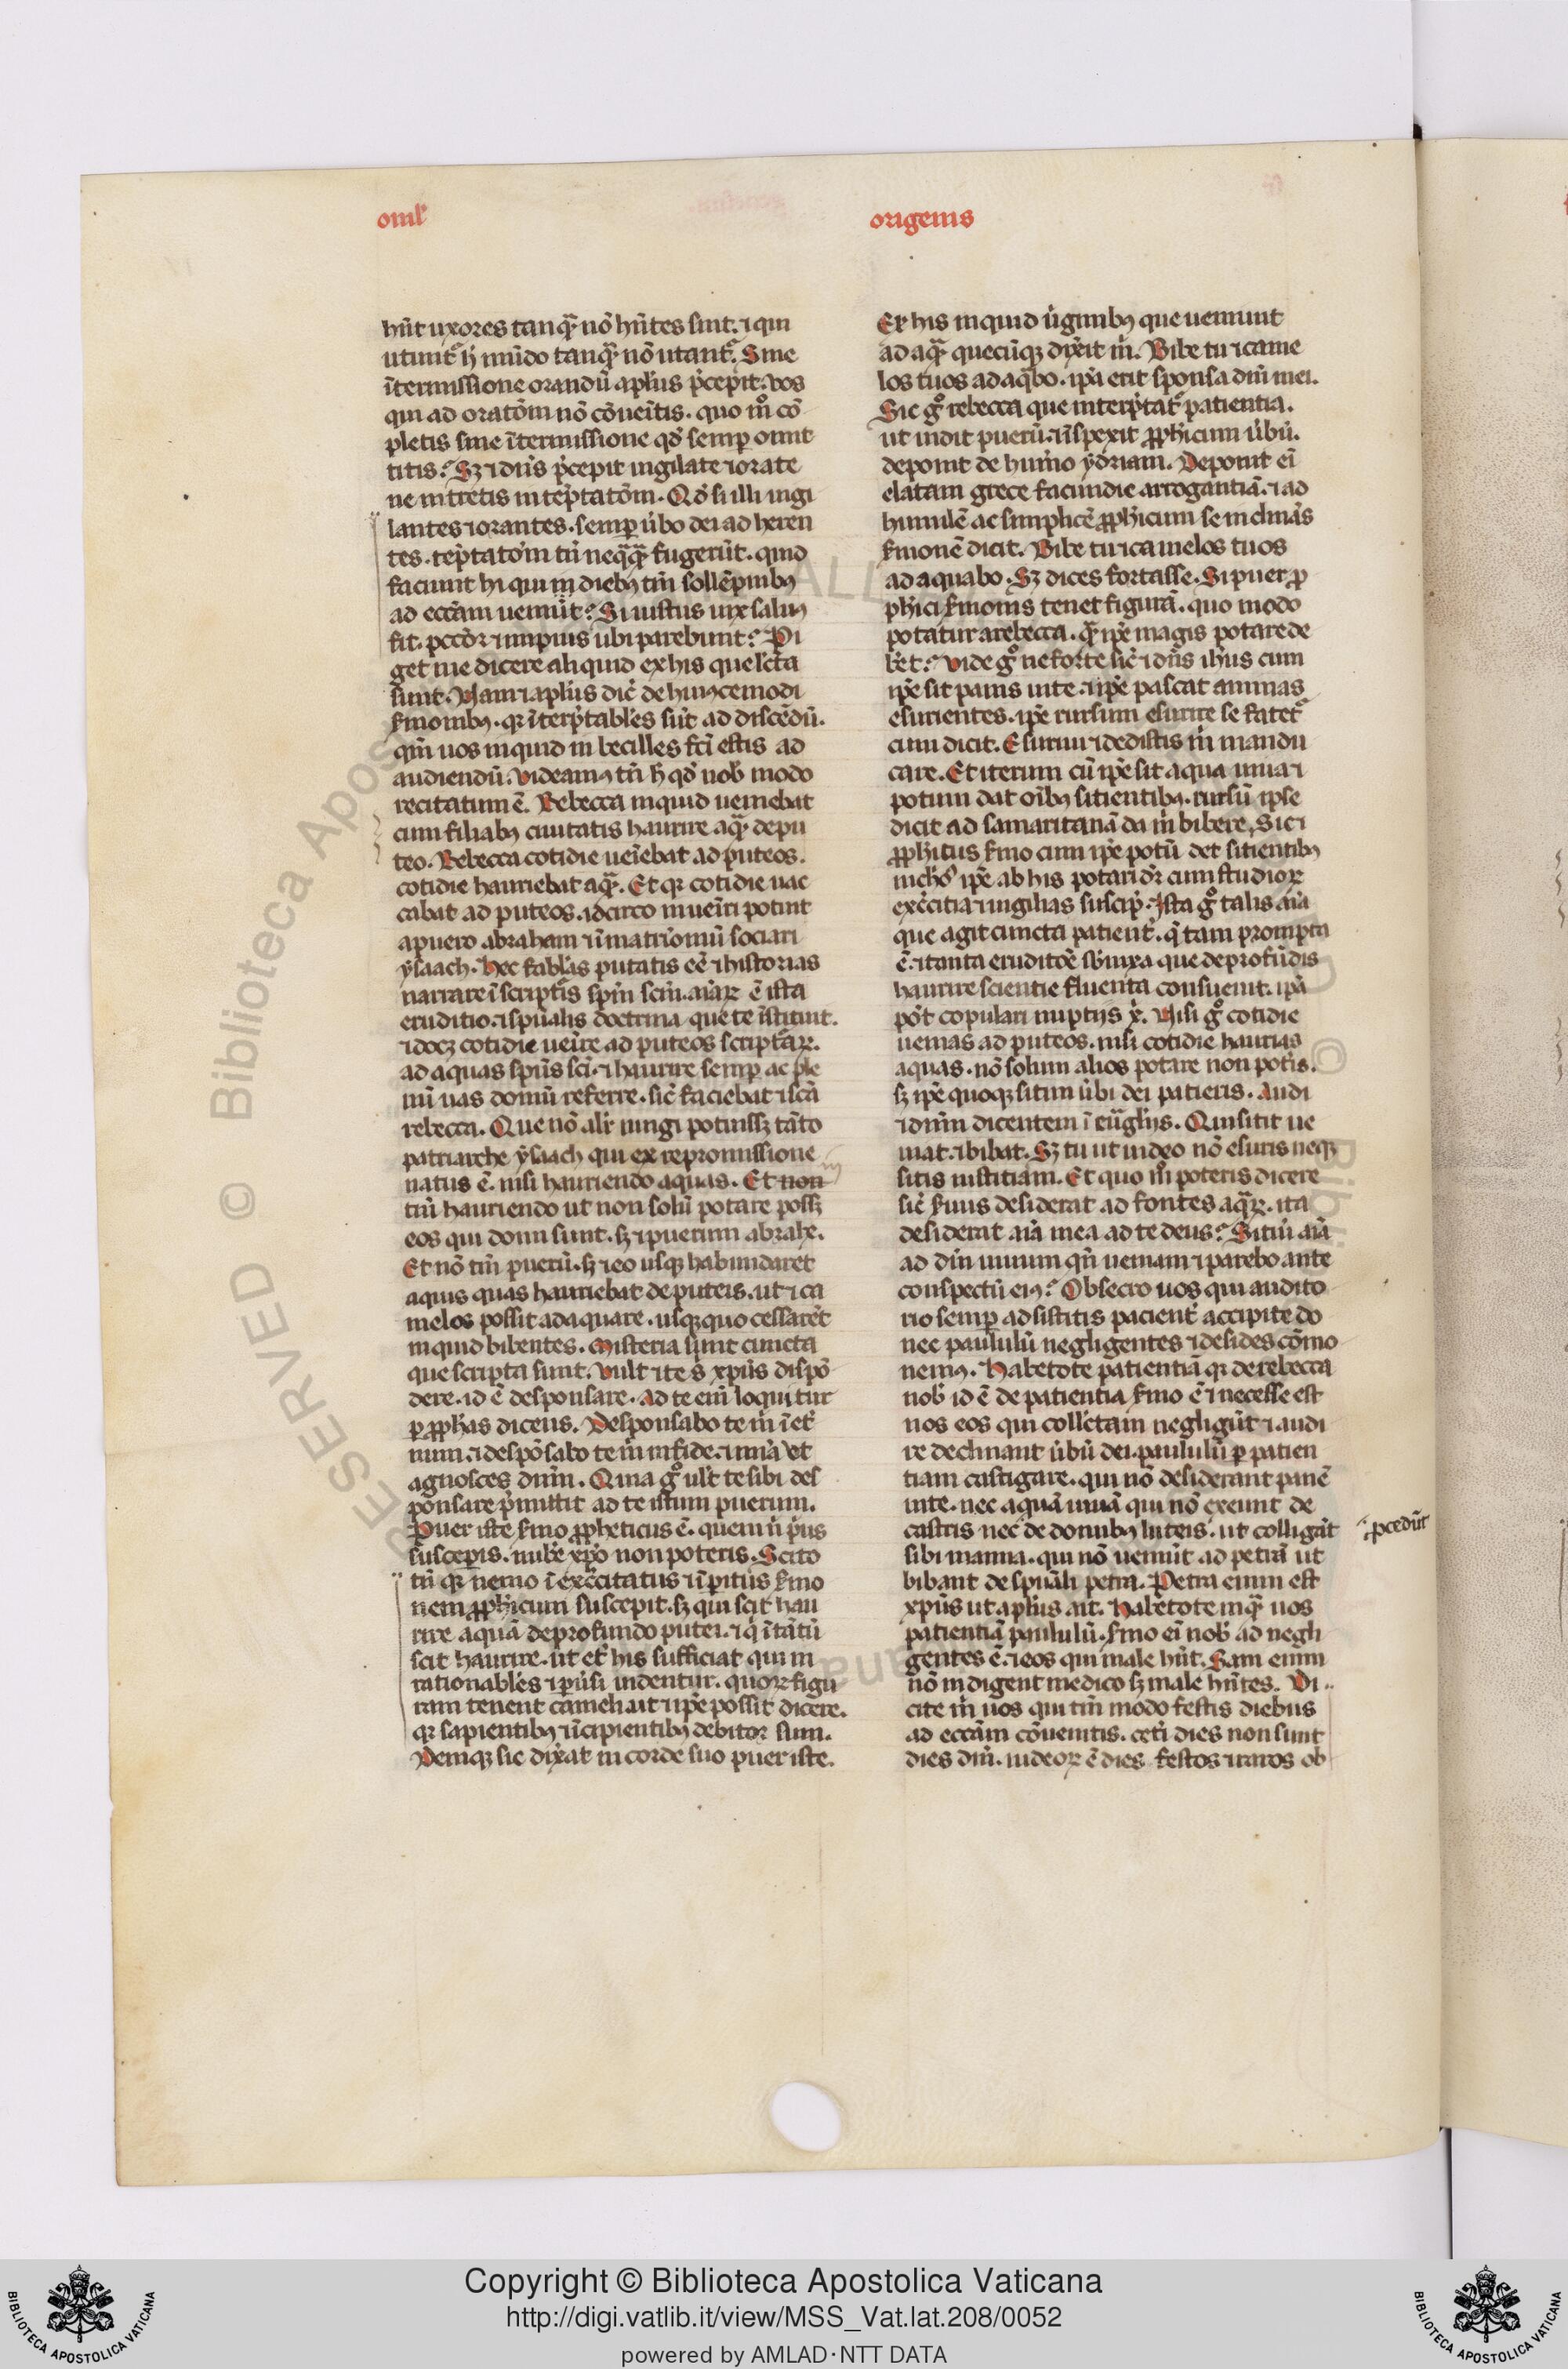 omł
origenis
hn̄t uxores tanqᷓ nō hn̄tes sint. ⁊ qui
utunt᷑ h̄ mūdo tanqᷓ nō utant᷑. Sine
īterмissione orandū aplꝰs p̄cepit. vos
qui ad oratōm nō cōueītis. quo mͦ cō
pletis sine ītermissione qd̓ semp̱ omit
titis? Sꝫ ⁊ dn̄s p̄cepit uigilate ⁊ orate
ne intretis in tēptatōm. Qd̓ si illi uigi
lantes ⁊ orantes. semp̱ u̓bo dei ad heren
tes. tēptatōm tn̄ neq̄qᷓ fugerūt. quid
faciunt hi qui in diebꝰ tm̄ sollēpnibꝰ
ad eccām ueniūt? Si iustus uix saluꝰ
fit. pccōr ⁊ impius ubi parebunt? Pi
get me dicere aliquid ex his que lc̄ta
sunt. Nam ⁊ aplꝰs dic̄ de huiꝰcemodi
s̓monibꝰ. qꝛ īterp̄tabiles sūt ad discēdū.
qm̄ uos inquid in becilles fc̄i estis ad
audiendū. Videamꝰ tn̄ h̄ qd̓ nob̓ modo
recitatum ē. Rebecca inquid ueniebat
cum filiabꝰ ciuitatis haurire aqᷓ de pu
teo. Rebecca cotidie ueīebat ad puteos.
cotidie hauriebat aqᷓ. Et qꝛ cotidie uac
cabat ad puteos. idcirco inueīri potuit
a puero abraham ⁊ ī matriomū sociari
ẏsaach. Hec fablas putatis eē ⁊ historias
narrare ī scriptīs sp̄m scm̄. aīaꝝ ē ista
eruditio. ⁊ spūalis doctrina que te īstituit.
⁊ docꝫ cotidie ueīre ad puteos scriptaꝝ.
ad aquas spūs sci. ⁊ haurire semp̱ ac ple
nū uas domū referre. sic̄ faciebat ⁊ scā
rebecca. Que nō alr̄ iungi potuissꝫ tāto
patriarche ẏsaach qui ex repromissione
natus ē. nisi hauriendo aquas. Et non
tm̄ hauriendo ut non solū potare possꝫ
eos qui domi sunt. sꝫ ⁊ puerum abrahe.
Et nō tm̄ puerū. sꝫ ⁊ eo usqꝫ habundaret
aquis quas hauriebat de puteis. ut ⁊ ca
melos possit adaquare. usqꝫ quo cessarēt
inquid bibentes. Misteria sunt cuncta
que scripta sunt. Vult ⁊ te s̓ xpūs dispō
dere. id ē desponsare. Ad te eni̅ loquitur
ꝑ ꝓphas dicens. Desponsabo te m̓ ī et̓
num. ⁊ despōsabo te m̓ in fide. ⁊ mīa ⁊
agnosces dnm̄. Quia gͦ ult̄ te sibi des
ponsare p̄mittit ad te istum puerum.
Puer iste s̓mo ꝓpheticus ē. quem n̓ p̓us
susceperis. nub̓e xpō non poteris. Scito
tn̄ qꝛ nemo ī exc̓citatus ⁊ īp̱itus s̓mo
nem ꝓphīcum suscepit. sꝫ qui scit hau
rire aquā de profundo putei. ⁊ q̓ ītātū
scit haurire. ut et̓ his sufficiat qui in
rationabiles ⁊ ꝑūsi uidentur. quoꝝ figu
ram tenent cameli. ut ⁊ ipē possit dicere.
qꝛ sapientibꝰ ⁊ īsipientibꝰ debitor sum.
Deniqꝫ sic dixat in corde suo puer iste.
Ex his inquid u̓ginibꝰ que ueniunt
ad aqᷓ quecūqꝫ dixit m̓. Bibe tu ⁊ came
los tuos adaq̄bo. ipā erit sponsa dn̄i mei.
Sic gͦ rebecca que interp̄tat᷑ patientia.
ut uidit puerū. ⁊ īspexit ꝓphīcum u̓bū.
deponit de hum̓o ẏdriam. Deponit eī
elatam grece facundie arrogantiā. ⁊ ad
humilē ac simplicē ꝓphīcum se inclināς
s̓monē dicit. Bibe tu ⁊ camelos tuos
ad aquabo. Sꝫ dices fortasse. Si puer ꝓ
phīci s̓monis tenet figurā. quo modo
potatur a rebecca. qᷓ ipē magis potare de
b̓et? Vide gͦ ne forte sic̄ ⁊ dn̄s ihūs cum
ipē sit panis uite. ⁊ ipē pascat animas
esurientes. ipē rursum esurire se fatet᷑
cum dicit. Esuriui ⁊ dedistis m̓ mandu
care. Et iterum cū ipē sit aqua uiua ⁊
potum dat oībꝰ sitientibꝰ. rursū ipse
dicit ad samaritanā da m̓ bibere. Sic ⁊
ꝓphitus s̓mo cum ipē potū det sitientibꝰ
nichꝰ ipē ab his potari dr̄ cum studioꝝ
exc̓citia ⁊ uigilias suscip̓. Ista gͦ talis aīa
que agit cuncta patient̓. q̓ tam prompta
ē. ⁊ tanta eruditōe sb̓nixa que de profūdis
haurire scientie fluenta consueuit. ipā
pōt copulari nuptijs x̄. Nisi gͦ cotidie
uenias ad puteos. nisi cotidie haurias
aquas. nō solum alios potare non pot̓is.
sꝫ ipē quoqꝫ sitim u̓bi dei patieris. Audi
⁊ dnm̄ dicentem ī eūglijs. Qui sitit ue
niat. ⁊ bibat. Sꝫ tu ut uideo nō esuris neqꝫ
sitis iustitiam. Et quo mͦ poteris dicere
sic̄ s̓uus desiderat ad fontes aqᷓꝝ. ita
desiderat aīa mea ad te deus? Sitiū aīa
ad dm̄ uiuum qn̄ ueniam ⁊ parebo ante
conspectū eiꝰ? Obsecro uos qui audito
rio semp̱ adsistitis pacient̓ accipite do
nec paululū negligentes ⁊ desides cōmo
nemꝰ. Habetote patientiā qꝛ de rebecca
nob̓ id ē de patientia s̓mo ē ⁊ necesse est
nos eos qui collc̄tam negligūt ⁊ audi
re declinant u̓bū dei. paululū ꝑ patien
tiam castigare. qui nō desiderant panē
uite. nec aquā uiuā qui nō exeunt de
castris nec de domibꝰ luteis. ut colligāt
ꝓcedūt
sibi manna. qui nō ueniūt ad petrā ut
bibant de spūali petra. Petra enim est
xpūs ut aplꝰs ait. Habetote inqᷓ uos
patientiā paululū. s̓mo eī nob̓ ad negli
gentes ē. ⁊ eos qui male hn̄t. Sani enim
nō indigent medico sꝫ male hn̄tes. Di
cite m̓ uos qui tm̄ modo festis diebus
ad eccām cōuenitis. cet̓i dies non sunt
dies dn̄i. iudeoꝝ ē dies festos ⁊ raros ob